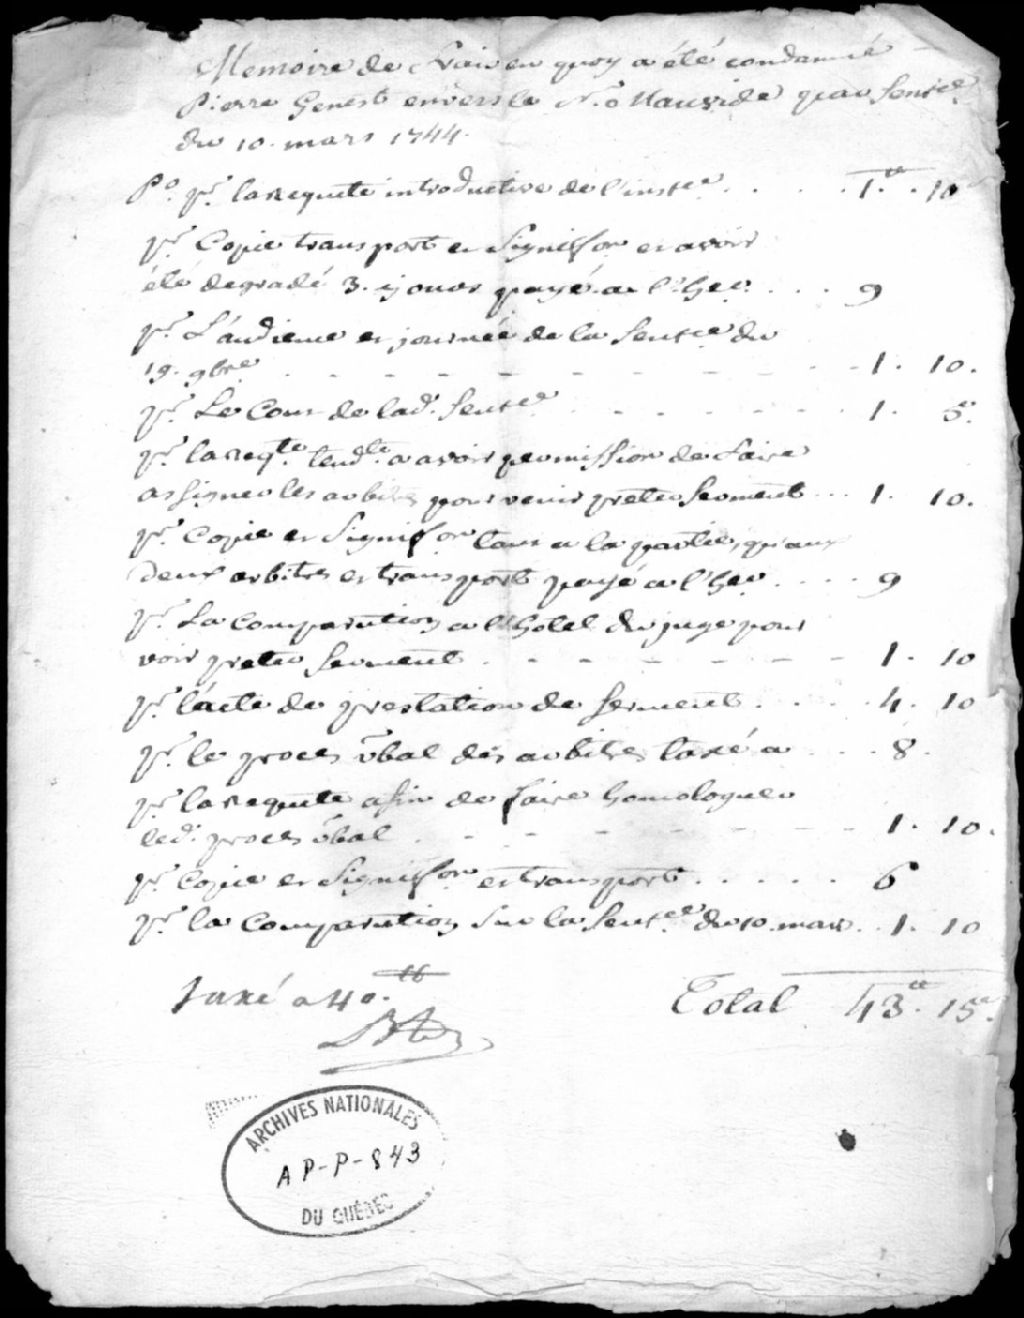 Memoire de frais en quoy a été condamné
Pierre Genest envers le Sr. Mauvide par Sentce
du 10 mars 1744.
Po. pr. la requete introductive de l'instce . . . . 1.tt . 10
pr. Copie transport et Signiffon et avoir
été degradé 3. jours payé a l'her. . . . 9
pr. L'audience et journée de la Sentce du
19. 9bre - - - - - - - - 1. 10.
pr. Le Cout de lad. Sentce - - - - - 1. 5s.
pr. la reqte. tendte. a avoir permission de faire
assigner les arbitres pour venir préter Serment . . . 1. 10.
pr. Copie et Signiffon tant a la partie, qu'aux
deux arbitres et transport payé a l'her. . . . . 9
pr. La Comparution a l'hotel du juge pour
voir préter Serment . - - - - - - - 1. 10
pr. l'acte de prestation de Serment . . . . 4. 10
pr. le procès vbal des arbitres taxé a . . . 8.
pr. la requete afin de faire homologuer
led. proces vbal . - - - - - - - 1. 10.
pr. Copie et Signiffon et transport . . . . . 6
pr. la Comparution Sur la Sentce. du 10. mars . . 1. 10
taxé a 40.tt Total 43tt. 15s.
ARCHIVES NATIONALES
AP-P-843
DU QUÉBEC